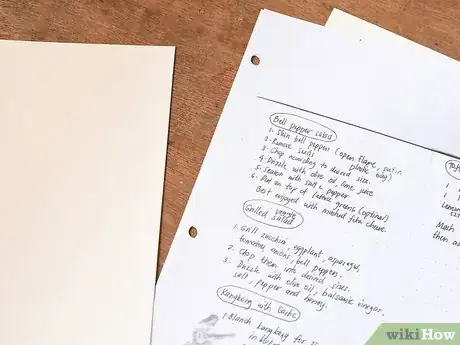 Bell pepper salad
1. Skin bell peppers (open flame, put in
plastic bag)
2. Remove seeds
3. Chop according to desired size.
4. Drizzle with olive oil, lime juice
5. Season with salt & pepper
6. Put on top of lettuce greens (optional)
Best enjoyed with mashed feta cheese.
Grilled veggie
salad
1. Grill zucchini, eggplant, asparagus,
tomatoes, onions, bell peppers.
2. Chop them into desired sizes.
3. Drizzle with olive oil, balsamic vinegar,
salt, pepper and honey.
Kangkong with Garlic
1. Blanch kangkong for
in
1
1
Lemon
Mash
then
wikiHow